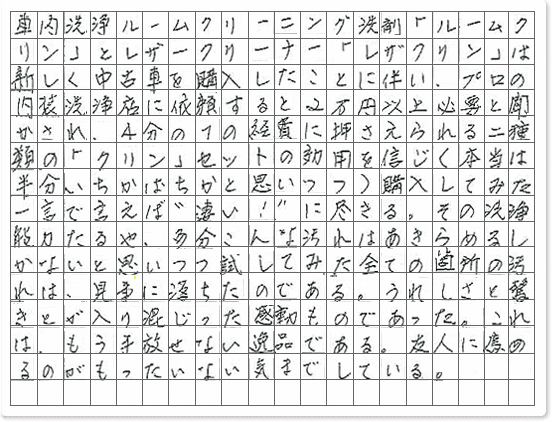 車内洗浄ルームクリーニング洗剤「ルームク
リン」とレザークリーナー「レザクリン」は
新しく中古車を購入したことに伴い、プロの
内装洗浄店に依頼すると2万円以上必要と聞
かされ、4分の1の経費に押さえられる二種
類の「クリン」セットの効用を信じく本当は
半分いちかばちかと思いつつ)購入してみた
一言で言えば"凄い!"に尽きる。その洗浄
能力たるや、多分こんな汚れはあきらめるし
かないと思いつつ試してみた全ての箇所の汚
れは、見事に落ちたのである。うれしさと驚
きとが入り混じった感動ものであった。これ
は、もう手放せない逸品である。友人に薦め
るのがもったいない気までしている。